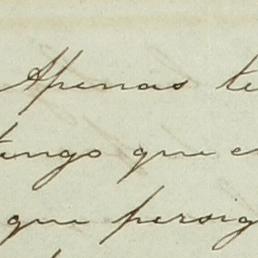 Apenas te
tengo que e
que persig